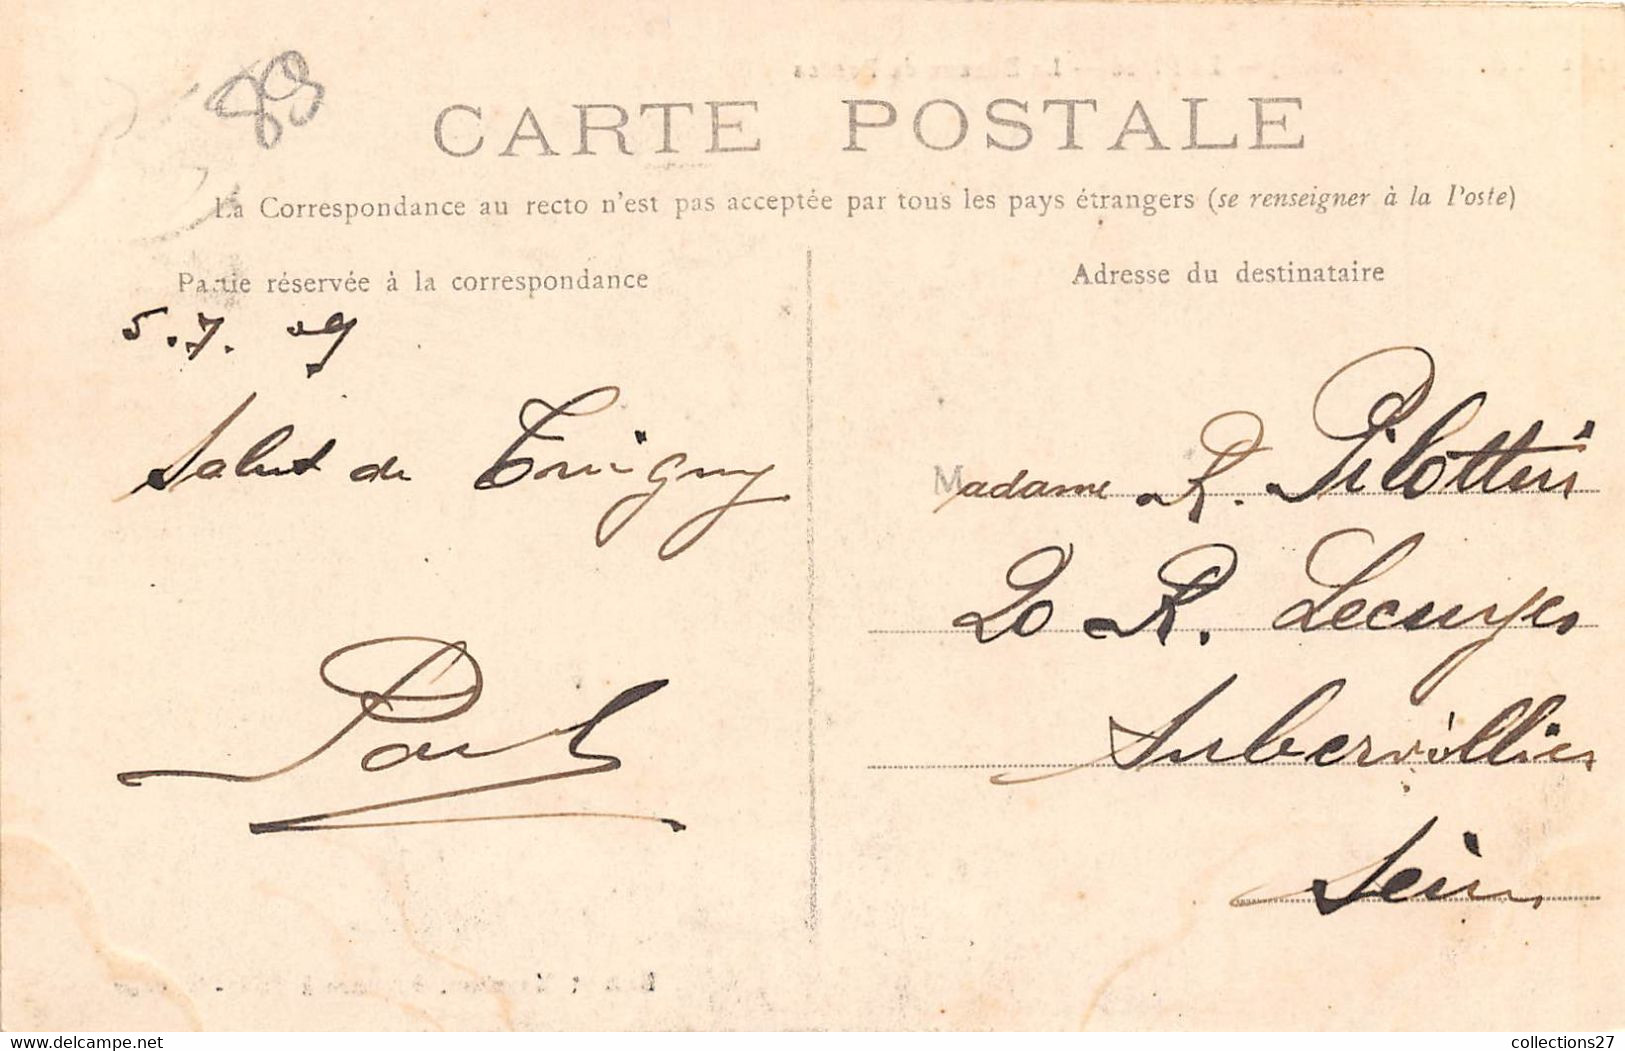 89
CARTE POSTALE
La Correspondance au recto n'est pas acceptée par tous les pays étrangers (se renseigner à la Poste)
Partie réservée à la correspondance
5.7.09
Salut de
Paul
Adresse du destinataire
Madame R. Pilotteri
20 R. Lecuyer
Aubervilliers
Seine
collections27